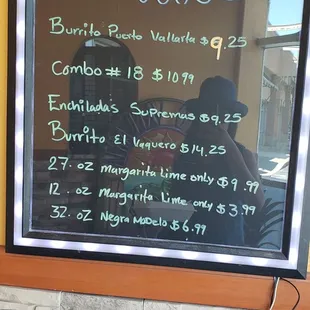 Burrito Puerto Vallarta $9.25
Combo # 18 $10.99
Enchiladas Supremas $9.25
Burrito El Vaquero $14.25
27. oz margarita Lime only $9.99
12. oz margarita Lime only $3.99
32. oz Negra Modelo $6.99